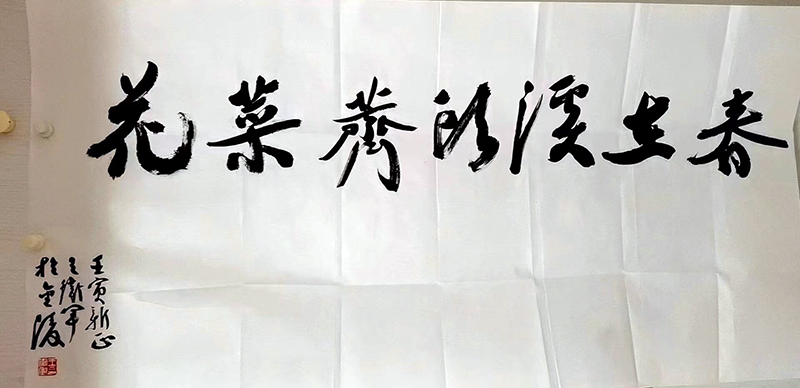 春在溪頭薺菜花
壬寅新正
王衛軍
於金陵